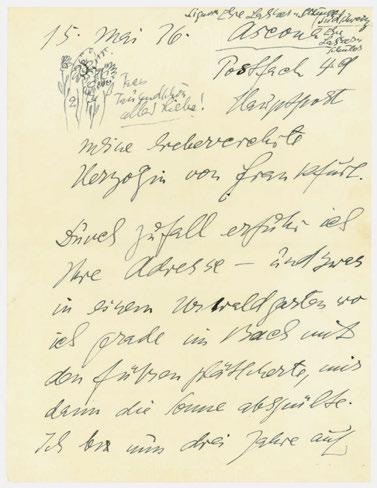 15. Mai 76.
Ascona
Postfach 49
Hauptpost
aller Liebe!
Meine hochverehrte
Herzogin von Frankfurt.
Durch Zufall erfuhr ich
Ihre Adresse – und zwar
in einem Urwaldgarten wo
ich gerade im Bach mit
den Füßen plätscherte, mir
dann die Sonne abspülte.
Ich bin nun drei Jahre auf